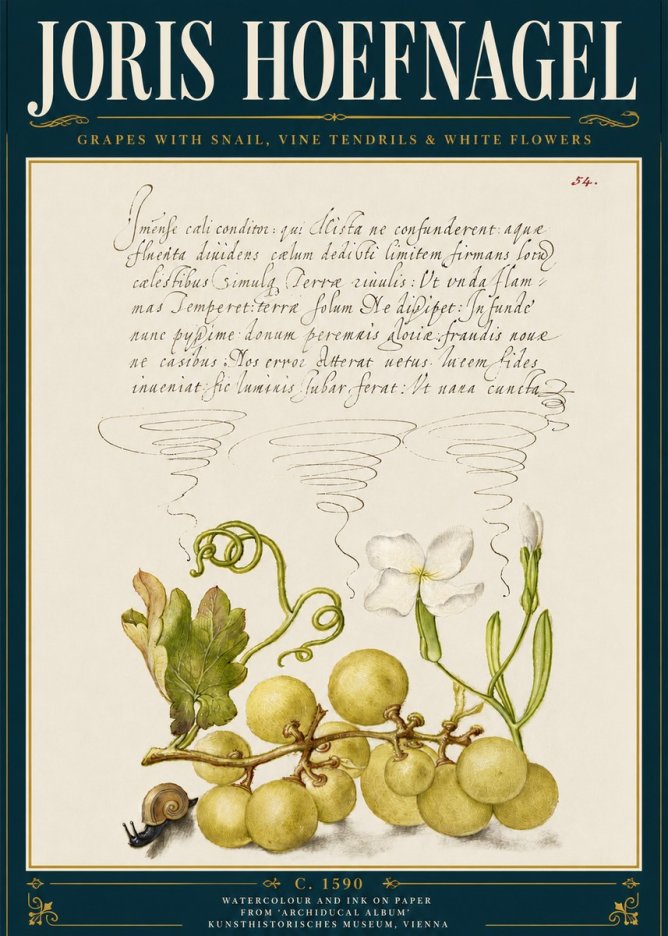 JORIS HOEFNAGEL
GRAPES WITH SNAIL, VINE TENDRILS & WHITE FLOWERS
54.
Imense cæli conditor: qui Mista ne confunderent: aquæ
fluenta diuidens cælum dedisti limitem firmans locū
cælestibus Simulq Terræ riuulis: Vt vnda flam-
mas Temperet: terræ solum Ne dißipet: Infunde
nunc pyßime donum perennis gloriæ: fraudis nouæ
ne casibus: Nos error Atterat vetus. lucem fides
inueniat: sic luminis Iubar ferat: Vt vana cuncta
C. 1590
WATERCOLOUR AND INK ON PAPER
FROM 'ARCHIDUCAL ALBUM'
KUNSTHISTORISCHES MUSEUM, VIENNA